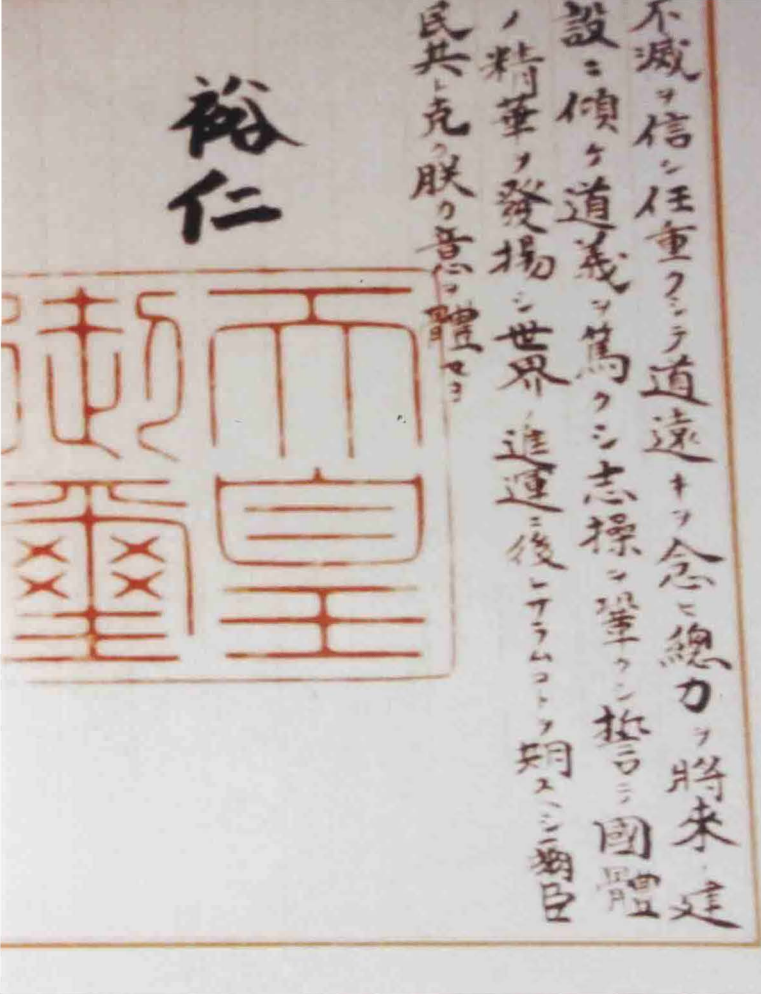 不滅ヲ信シ任重クシテ道遠キヲ念ヒ總力ヲ將来ノ建
設ニ傾ケ道義ヲ篤クシ志操ヲ鞏クシ誓テ國體
ノ精華ヲ發揚シ世界ノ進運ニ後レサラムコトヲ期スヘシ爾臣
民其レ克ク朕カ意ヲ體セヨ
裕仁
天皇
御璽